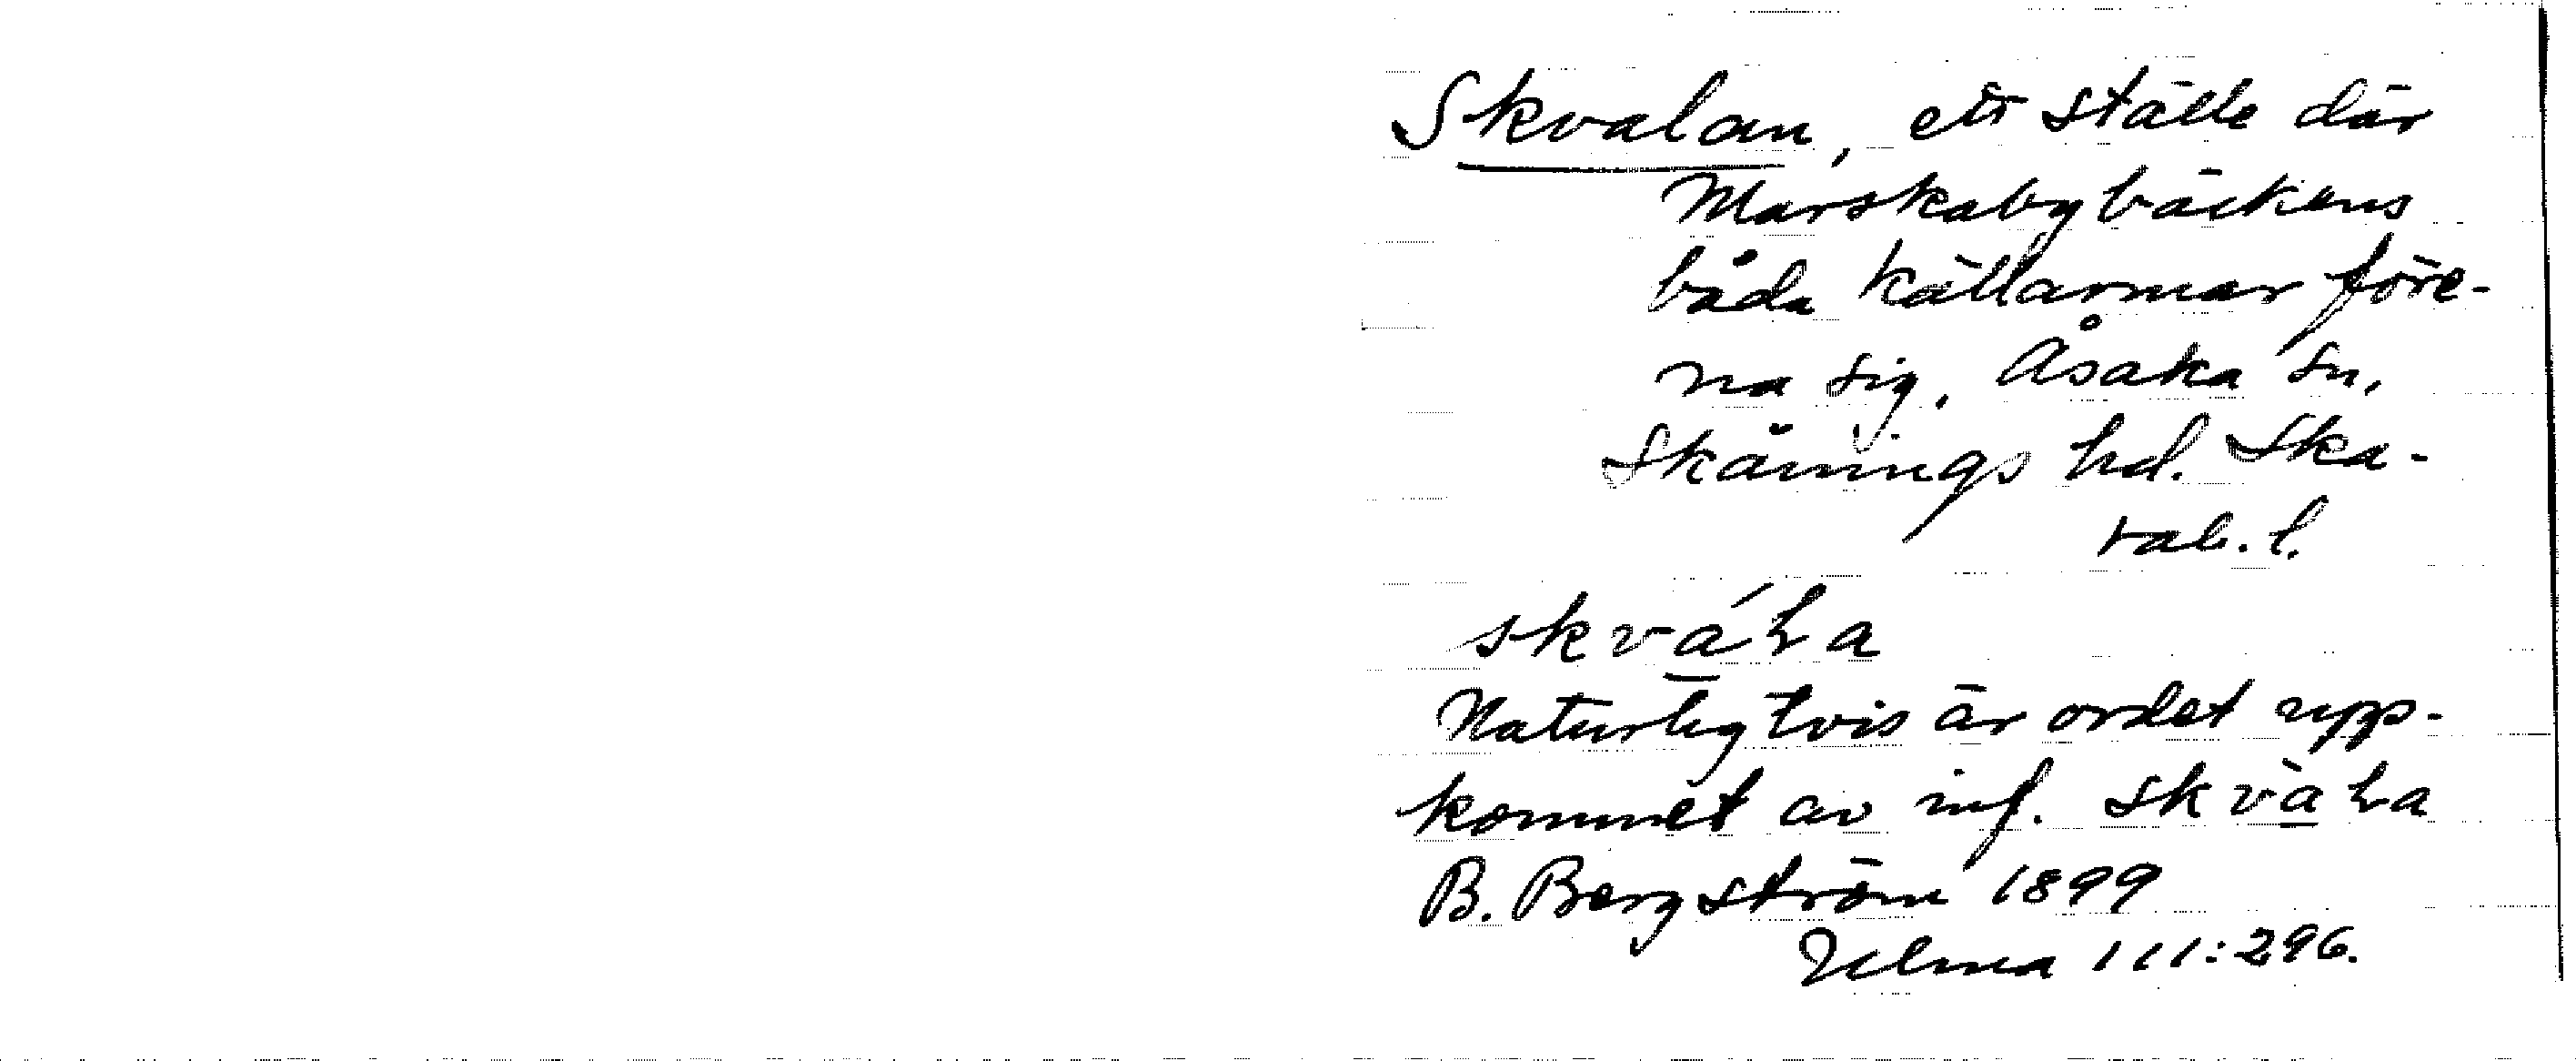 Skvalan, ett ställe där
Marskabybäckens
båda källarmar före-
na sig. Åsaka sn,
Skånings hd. Ska-
rab. l.
skvála
Naturligtvis är ordet upp-
kommet av inf. skvàla
B. Bergström 1899
Ulma 111:296.